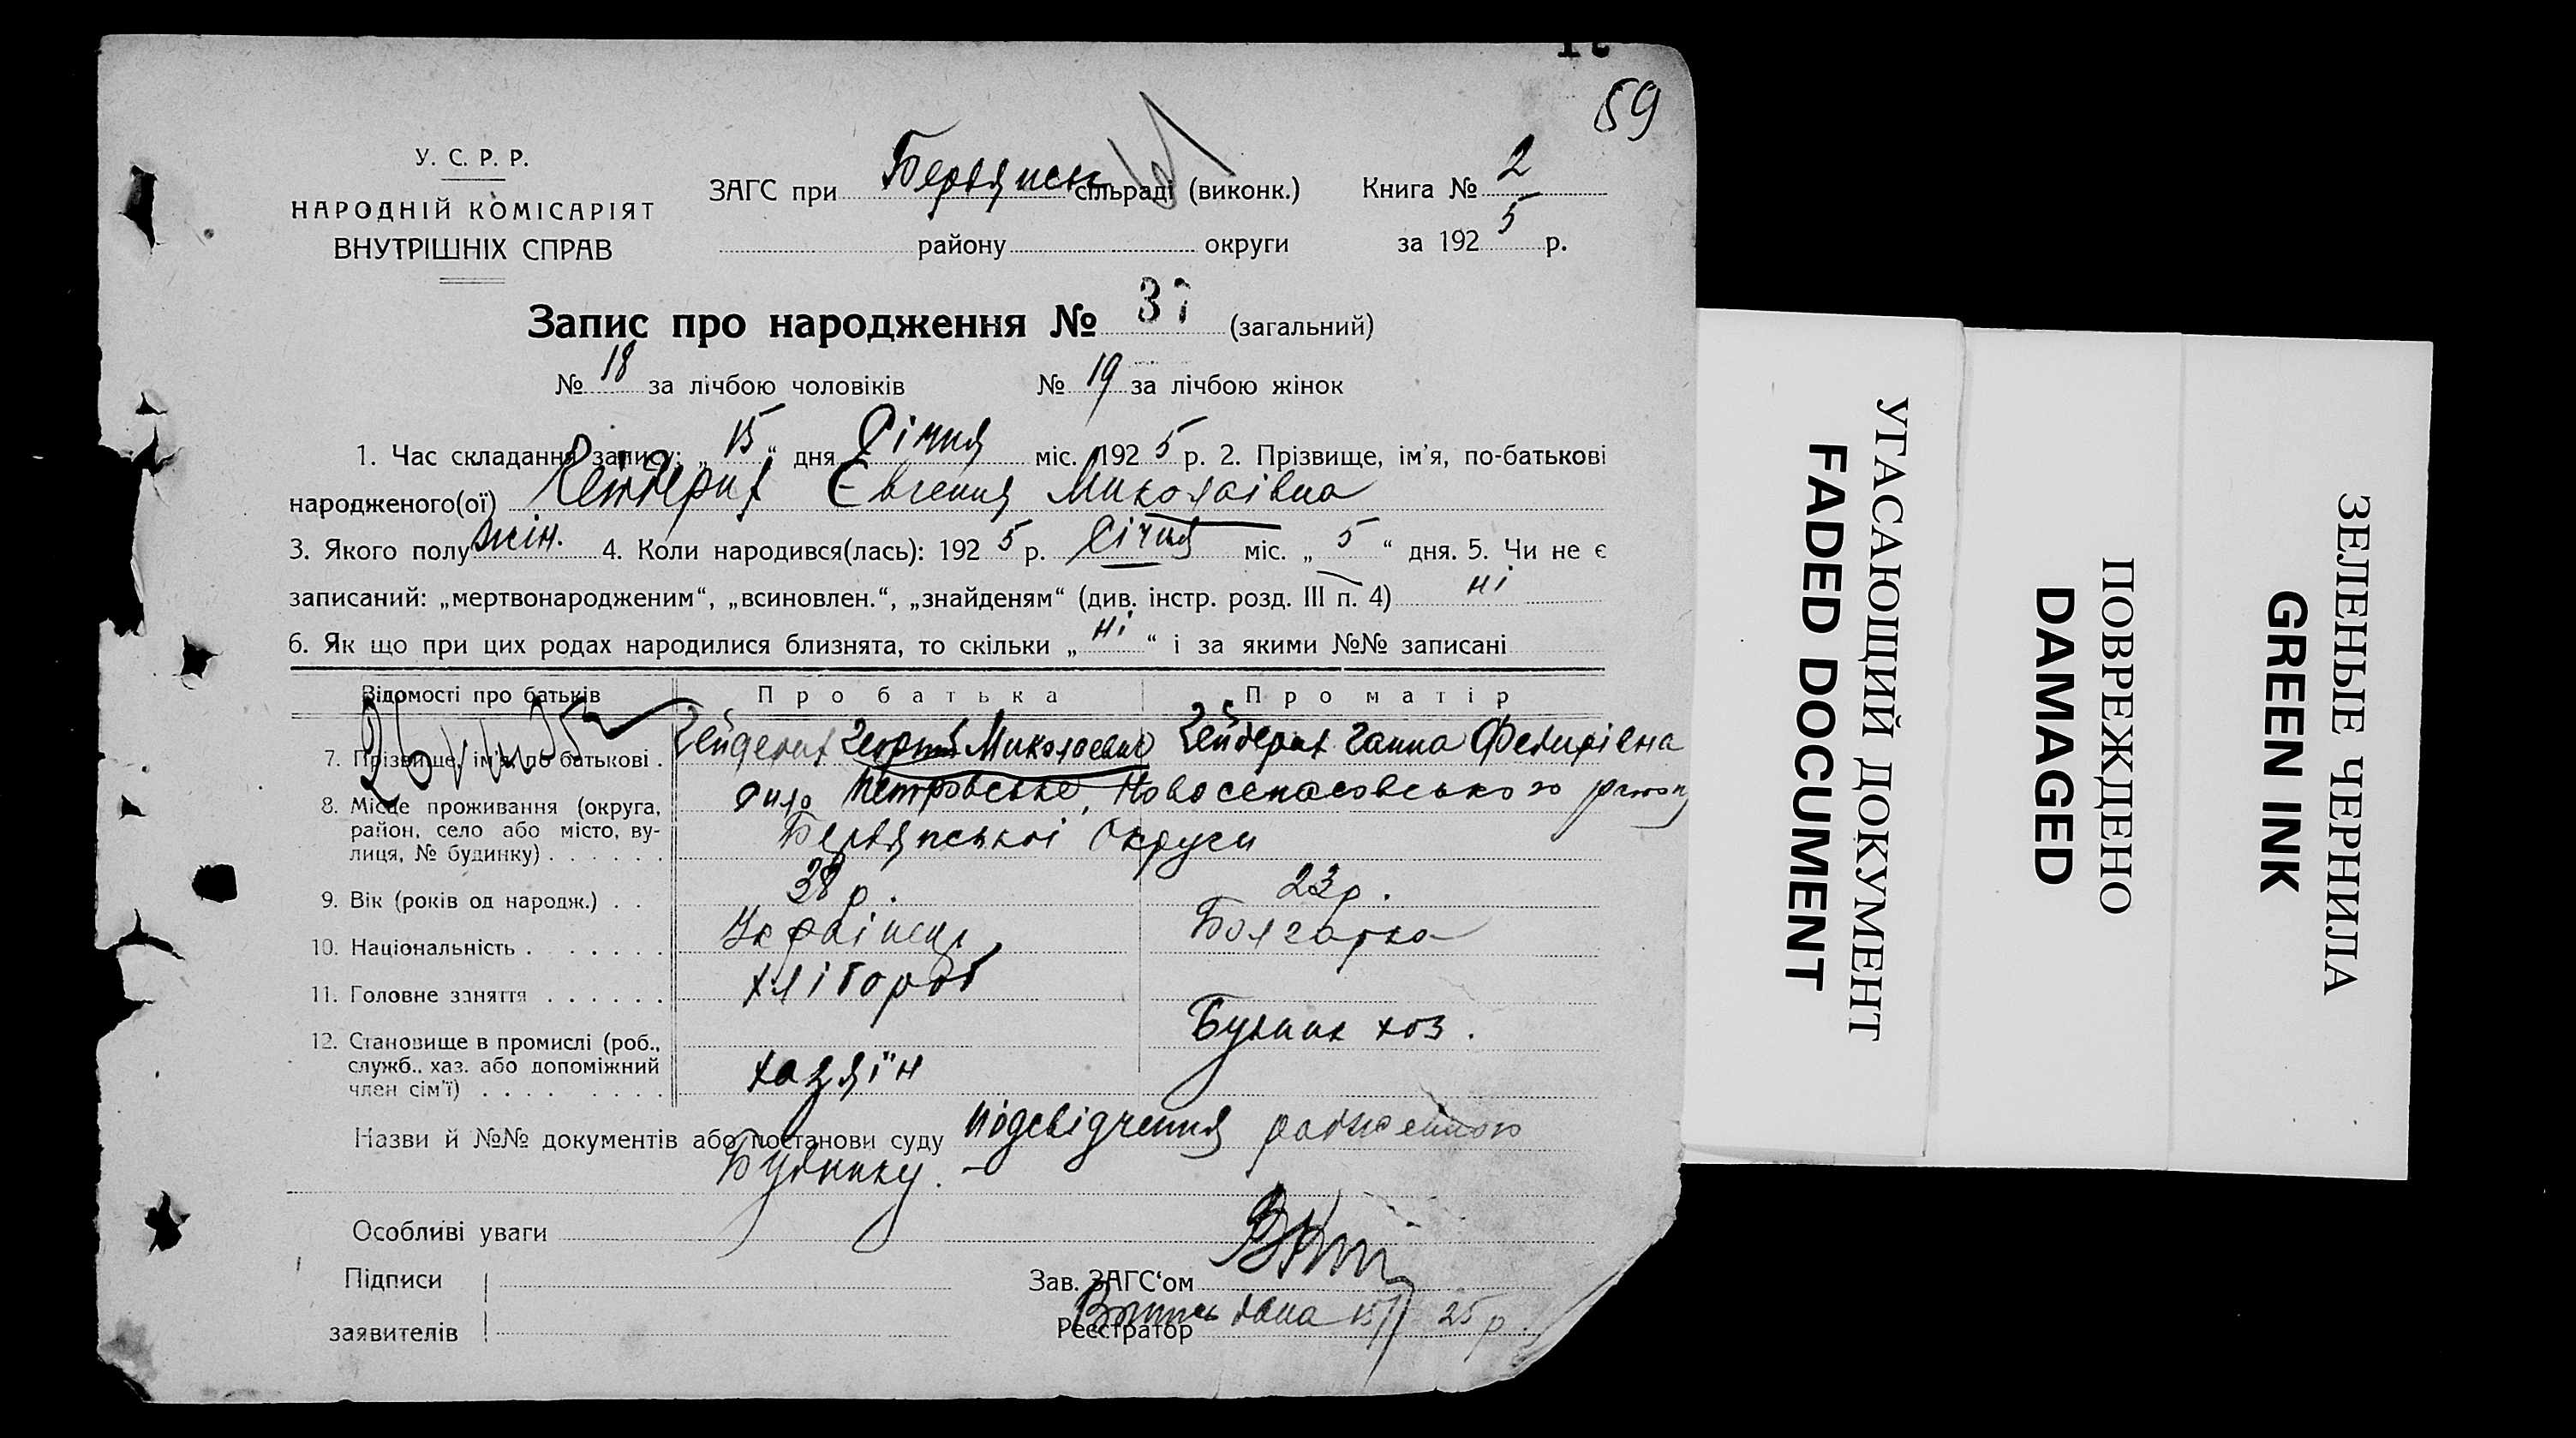 59
У. С. Р. Р.
НАРОДНІЙ КОМІСАРІЯТ
ВНУТРІШНІХ СПРАВ
ЗАГС при Бердянськ сільраді (виконк.) Книга № 2
району округи за 1925 р.
Запис про народження № 37 (загальний)
№ 18 за лічбою чоловіків № 19 за лічбою жінок
1. Час складання запису: „ 15 “ дня Січня міс. 1925 р. 2. Прізвище, ім’я, по-батькові
народженого(ої) Євгения Миколаівна
3. Якого полу жін. 4. Коли народився(лась): 1925 р. Січня міс. „ 5 “ дня. 5. Чи не є
записаний: „мертвонародженим“, „всиновлен.“, „знайденям“ (див. інстр. розд. III п. 4) ні
6. Як що при цих родах народилися близнята, то скільки „ ні “ і за якими №№ записані
Відомості про батьків Про батька Про матір
7. Прізвище, ім’я, по батькові . Миколаевич Ганна
8. Місце проживання (округа, район, село або місто, ву-
лиця, № будинку) . . . . . .
село Петровське, Новоспасовського району
Бердянської Округи
9. Вік (років од народж.) . . 38 р. 23 р.
10. Національність . . . . . . . Українець Болгарка
11. Головне заняття . . . . . . хлібороб
12. Становище в промислі (роб.,
служб., хаз. або допоміжний
член сім’ї) . . . . . . . .
хазяїн
хоз.
Назви й №№ документів або постанови суду подсвідчення
Будинку. –
Особливі уваги
Підписи Зав. ЗАГС‘ом
заявителів Реєстратор
дана 15/I 25 р.
УГАСАЮЩИЙ ДОКУМЕНТ
FADED DOCUMENT
ПОВРЕЖДЕНО
DAMAGED
ЗЕЛЕНЫЕ ЧЕРНИЛА
GREEN INK